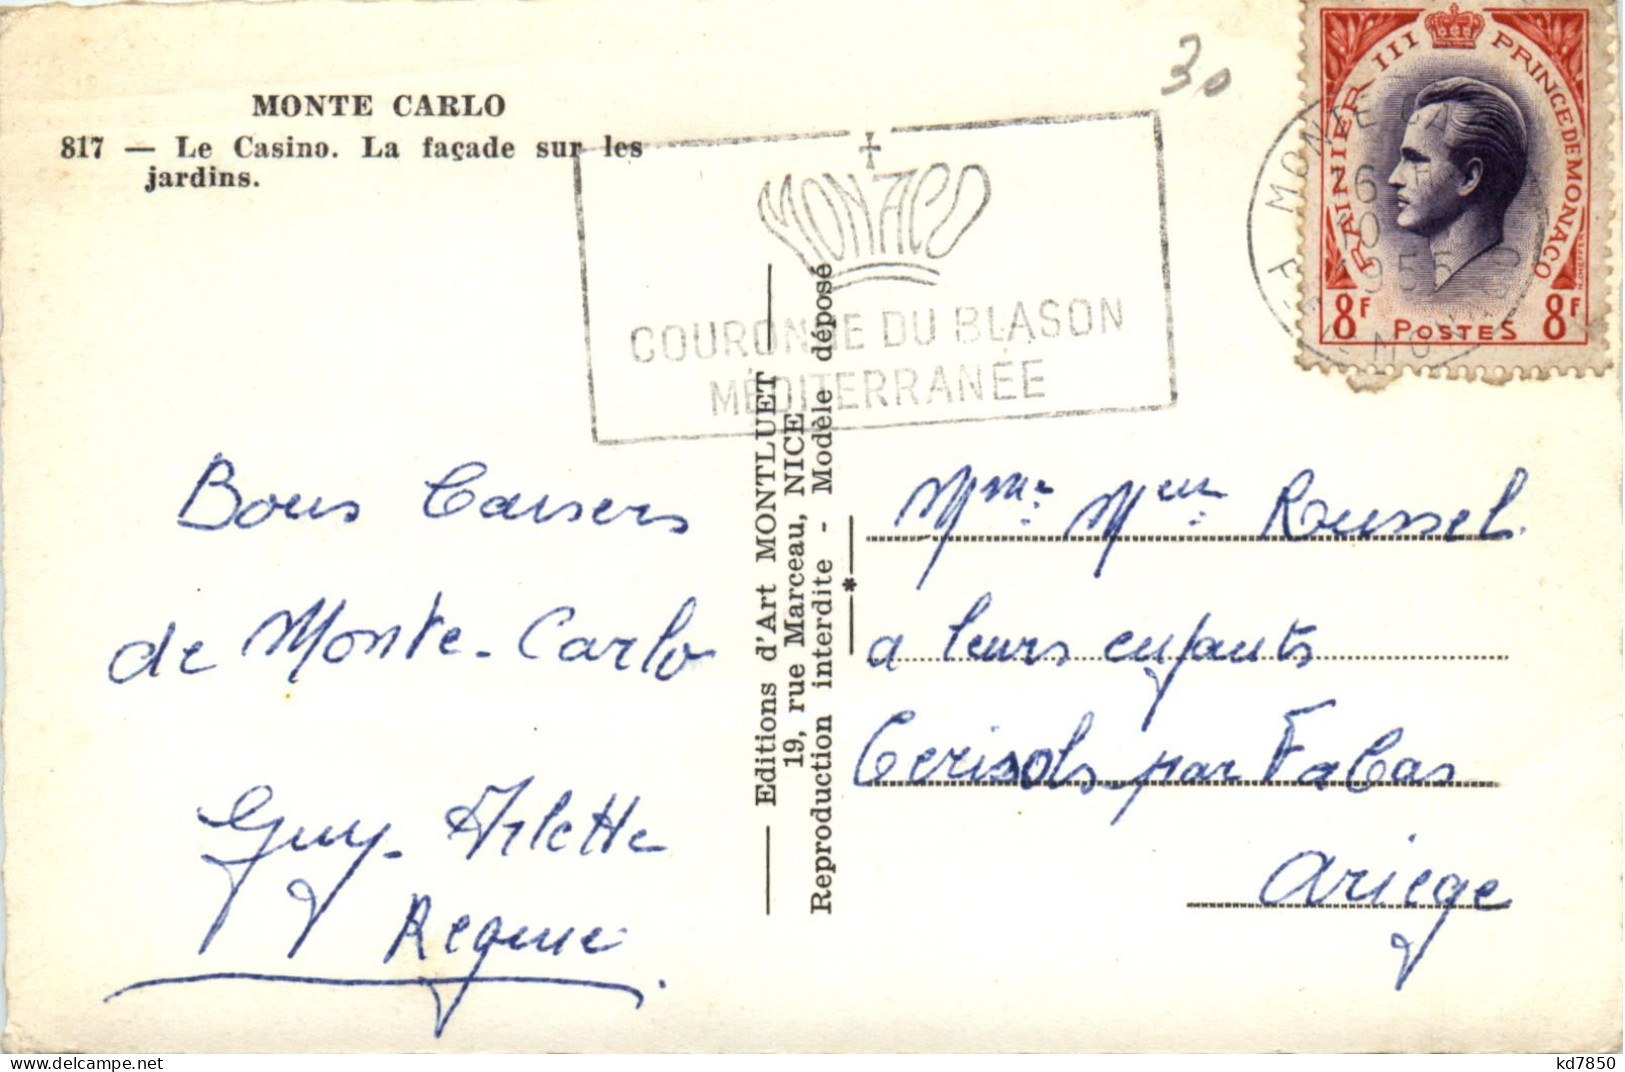 MONTE CARLO
817 — Le Casino. La façade sur les
jardins.
30
MONACO
COURONNE DU BLASON
MÉDITERRANÉE
RAINIER III PRINCE DE MONACO
8F POSTES 8F
MONTE-CA
6
10
1955
Bons Baisers
de Monte-Carlo
Guy Arlette
Regine
Editions d'Art MONTLUET
19, rue Marceau, NICE
Reproduction interdite - Modèle déposé
Mme Meur Roussel
a leurs enfants
Cerisols par Fabas
Ariege
kd7850